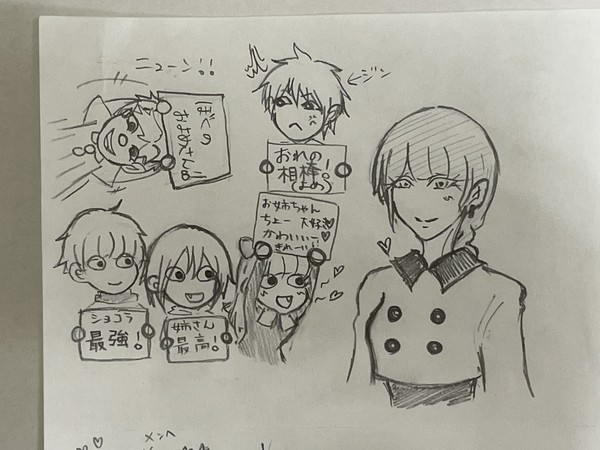 ニューン!!
ぼくの
お嫁さん!!
ジン
おれの
相棒!
(よめ)
お姉ちゃん
ちょー 大好き♥
かわいいー♥
きれーい!!
ショコラ
最強!
姉さん
最高!
メンヘ